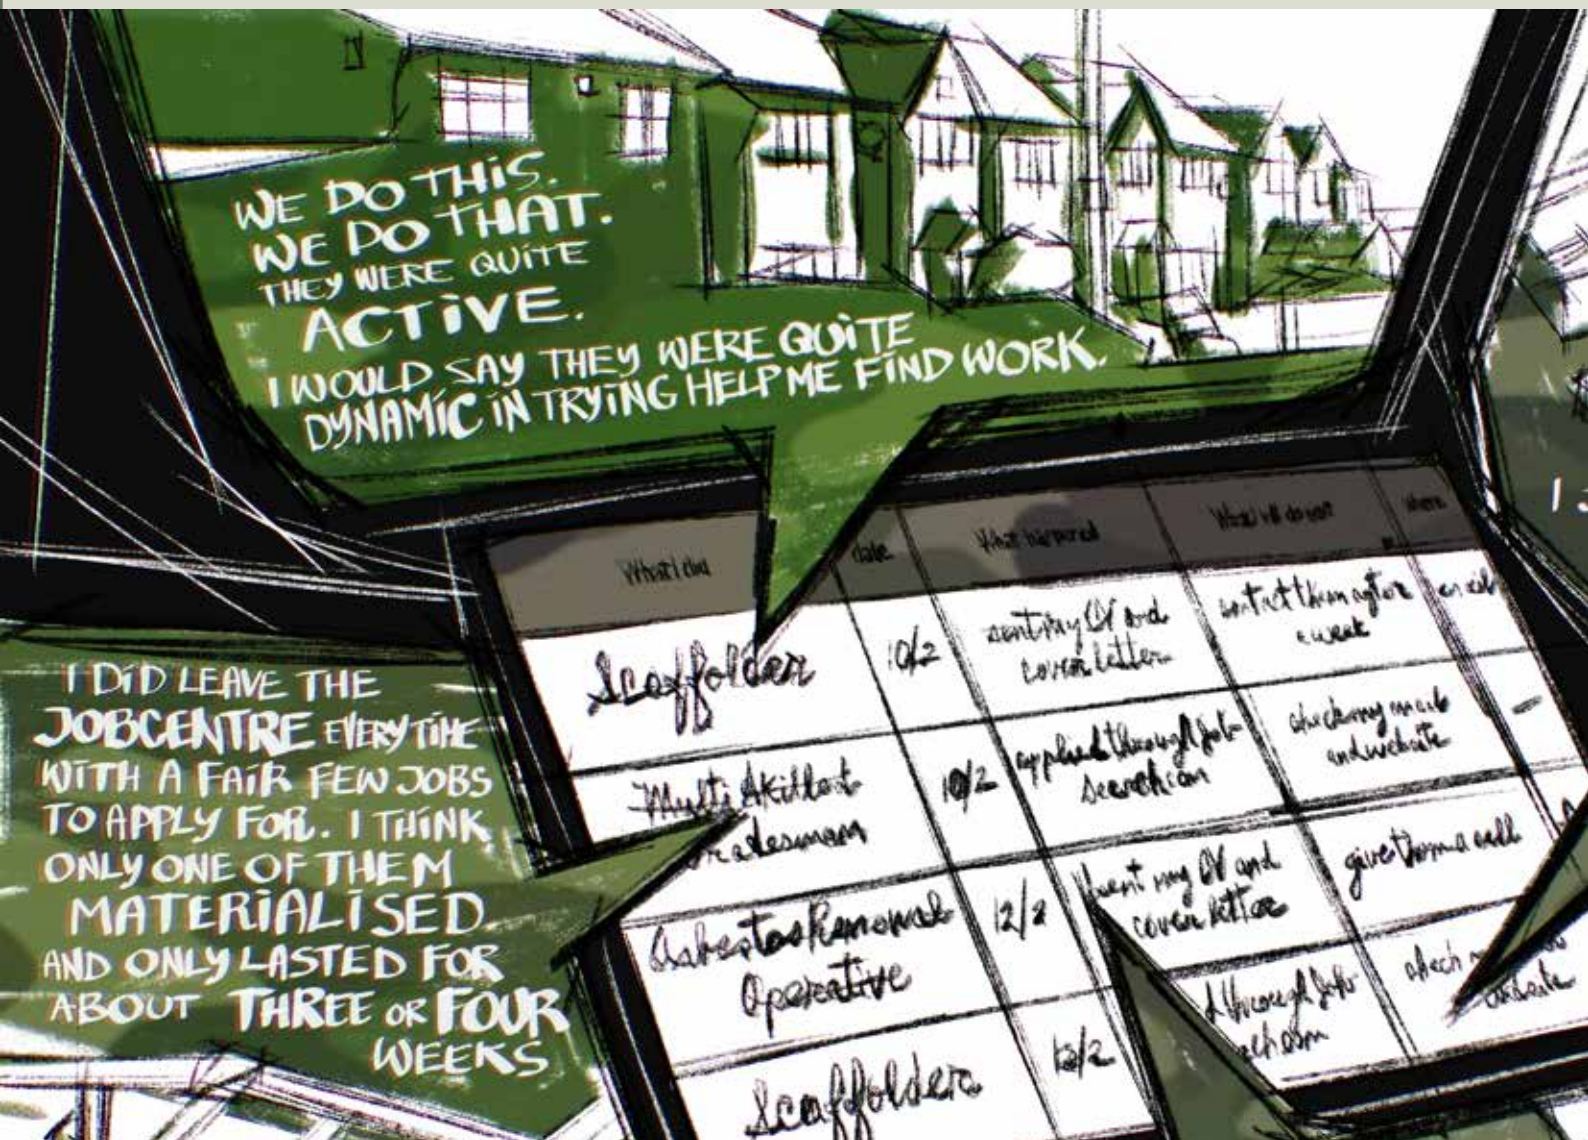 WE DO THIS.
WE DO THAT.
THEY WERE QUITE
ACTIVE.
I WOULD SAY THEY WERE QUITE
DYNAMIC IN TRYING HELP ME FIND WORK.
I DID LEAVE THE
JOBCENTRE EVERYTIME
WITH A FAIR FEW JOBS
TO APPLY FOR. I THINK
ONLY ONE OF THEM
MATERIALISED
AND ONLY LASTED FOR
ABOUT THREE OR FOUR
WEEKS
What I did
date
What happened
What I will do next
where
Scaffolder
10/2
sent my CV and
cover letter
contact them after
a week
Multi Skilled
Tradesman
10/2
applied through job
search
check my mails
and website
Asbestos Removal
Operative
12/2
sent my CV and
cover letter
give them a call
Scaffolder
12/2
through job
check
website
I